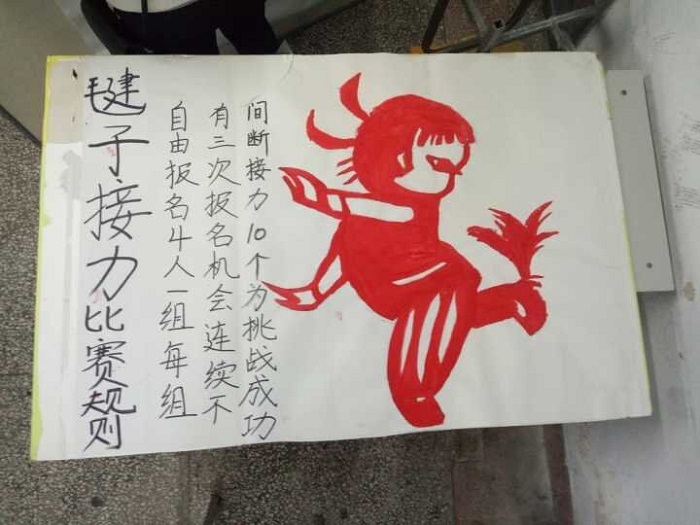 毽子接力比赛规则
自由报名4人一组每组
有三次报名机会连续不
间断接力10个为挑战成功